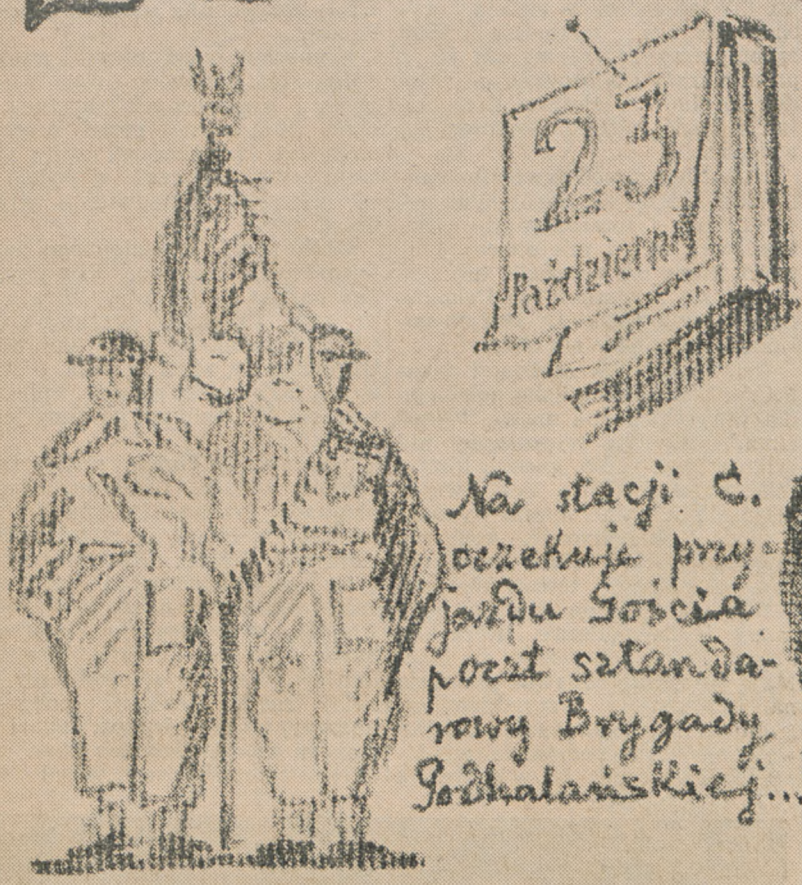 23
Październik
Na stacji C.
oczekuje przy-
jazdu Gościa
poczt sztanda-
rowy Brygady
Podhalańskiej...